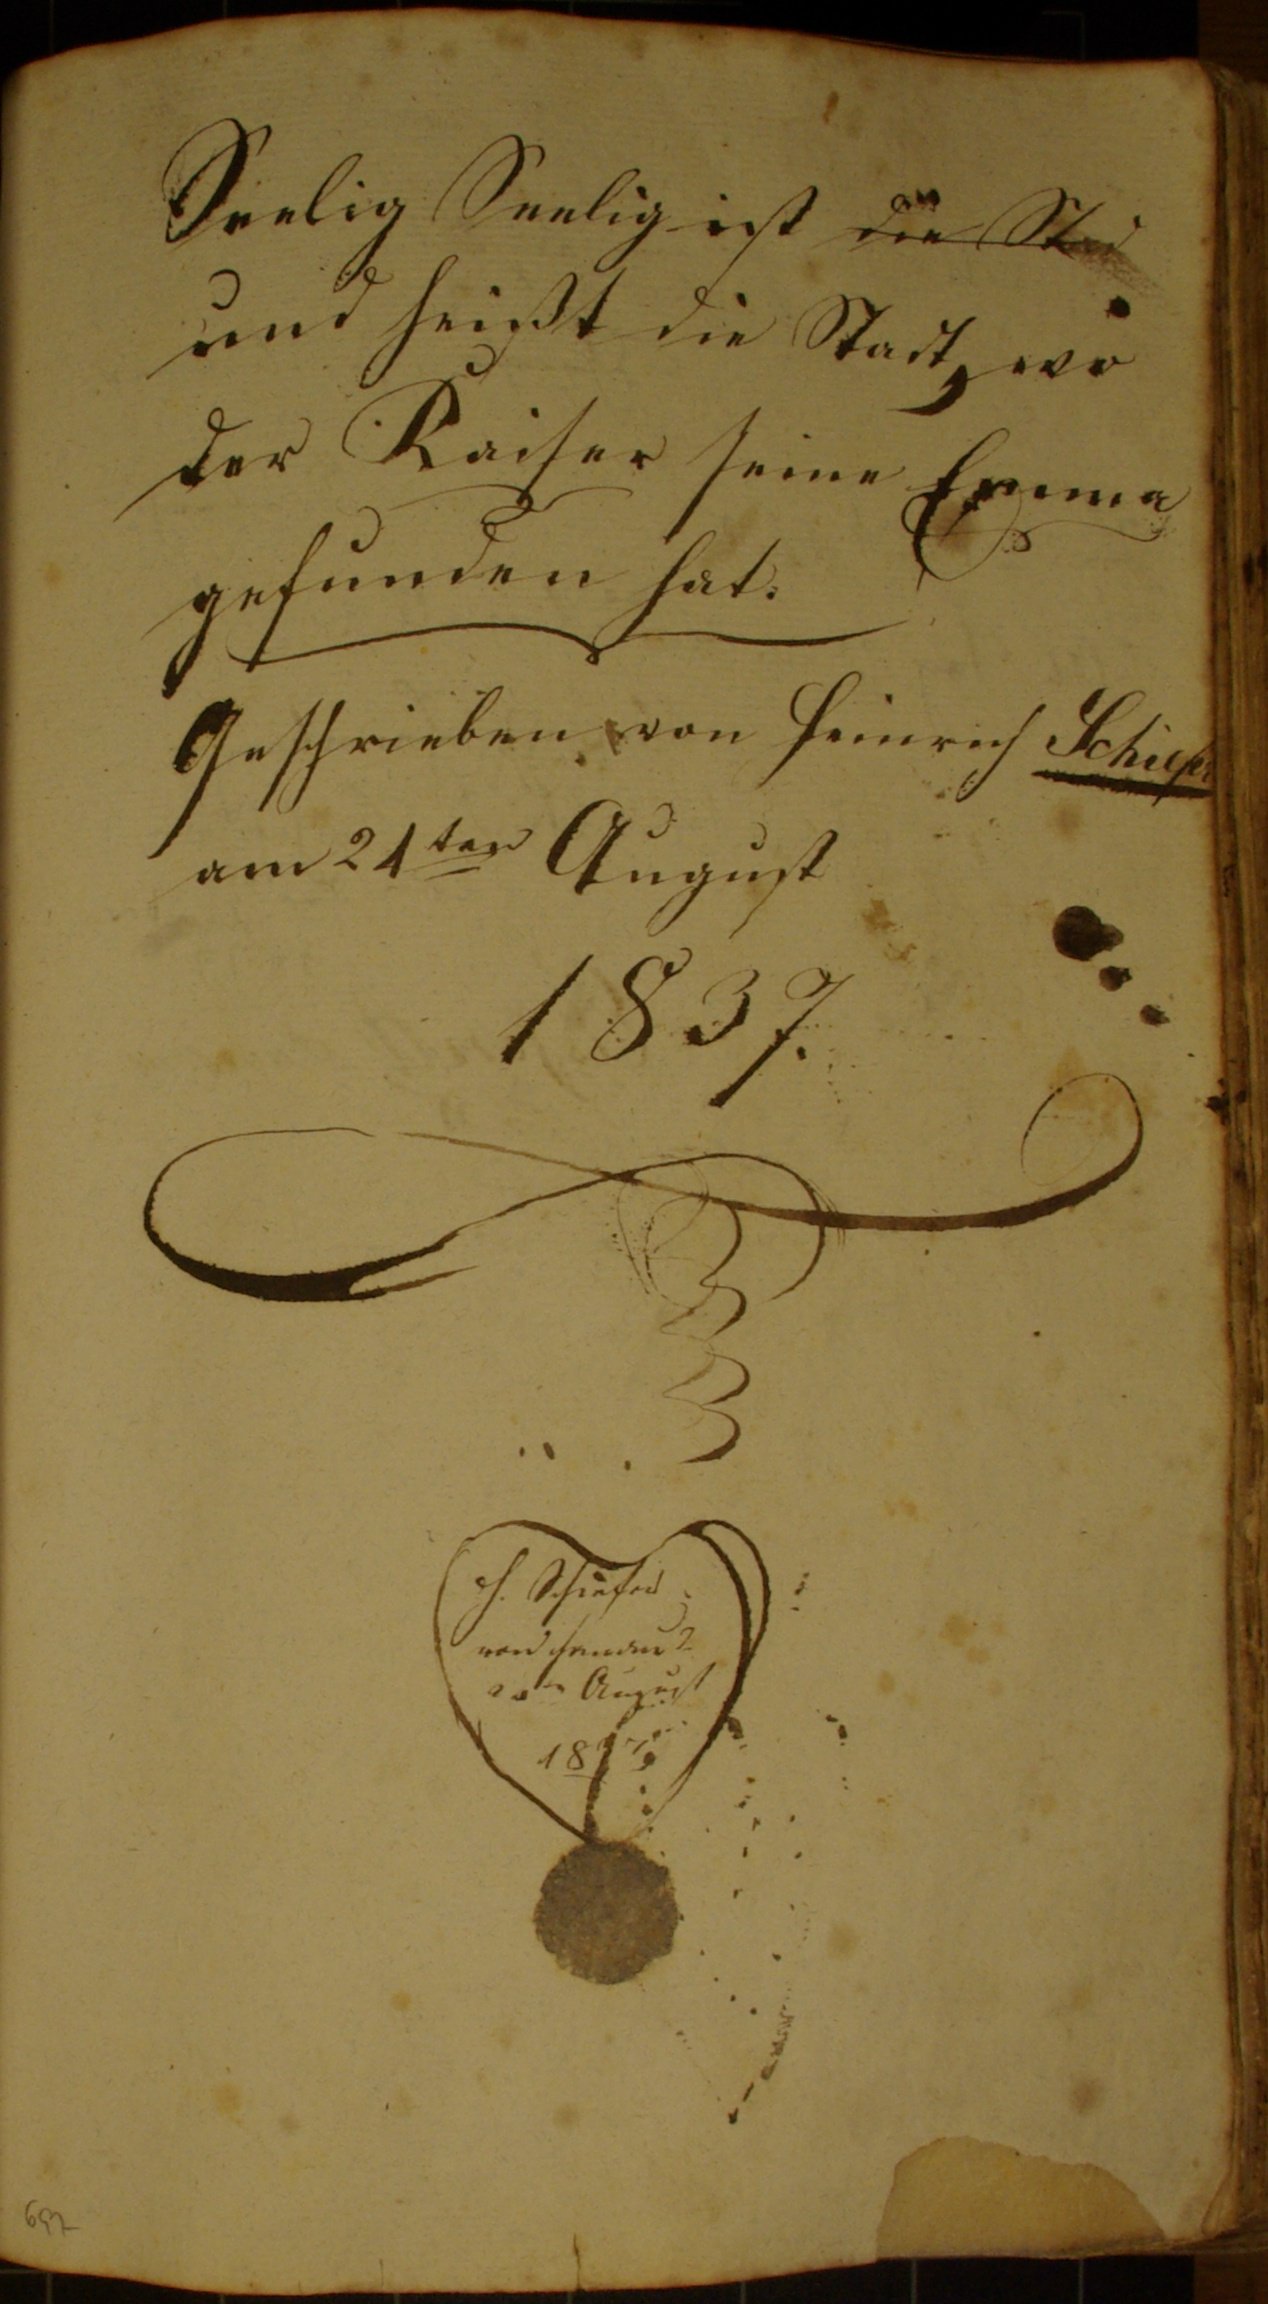 Seelig Seelig ist die Stad
und heißt die Stadt, wo
der Kaiser seine Emma
gefunden hat.
Geschrieben von Heinrich Schiefer
am 21ten August
1837.
H. Schiefer
von
August
18
697